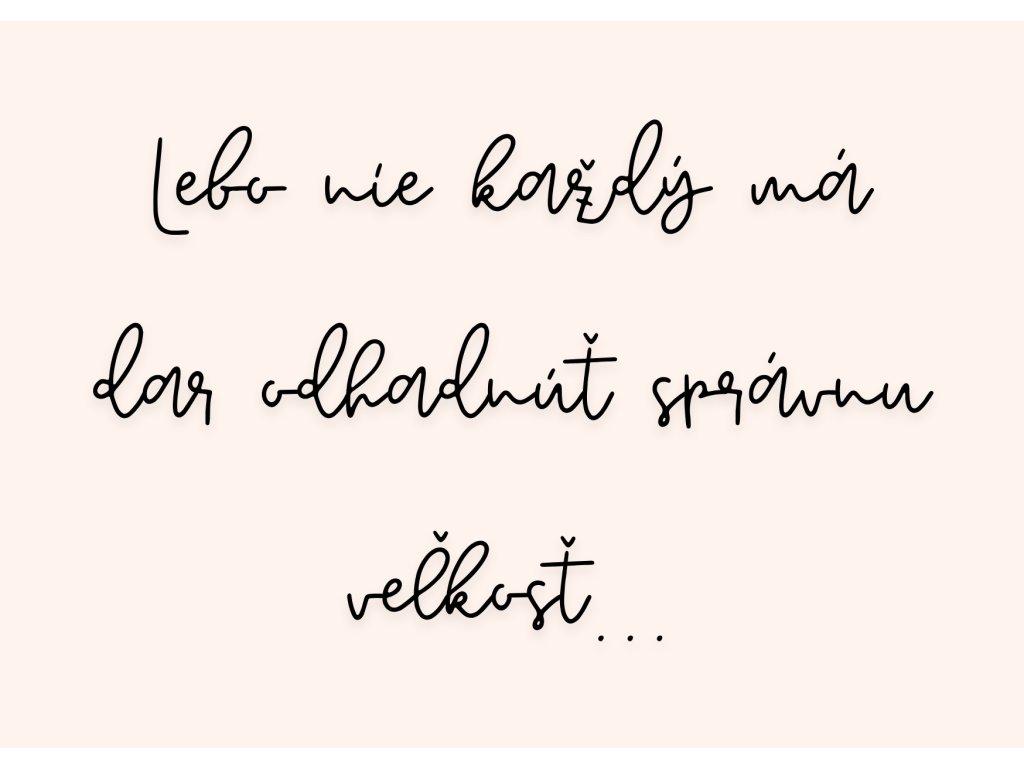 Lebo nie každý má
dar odhadnúť správnu
veľkosť...